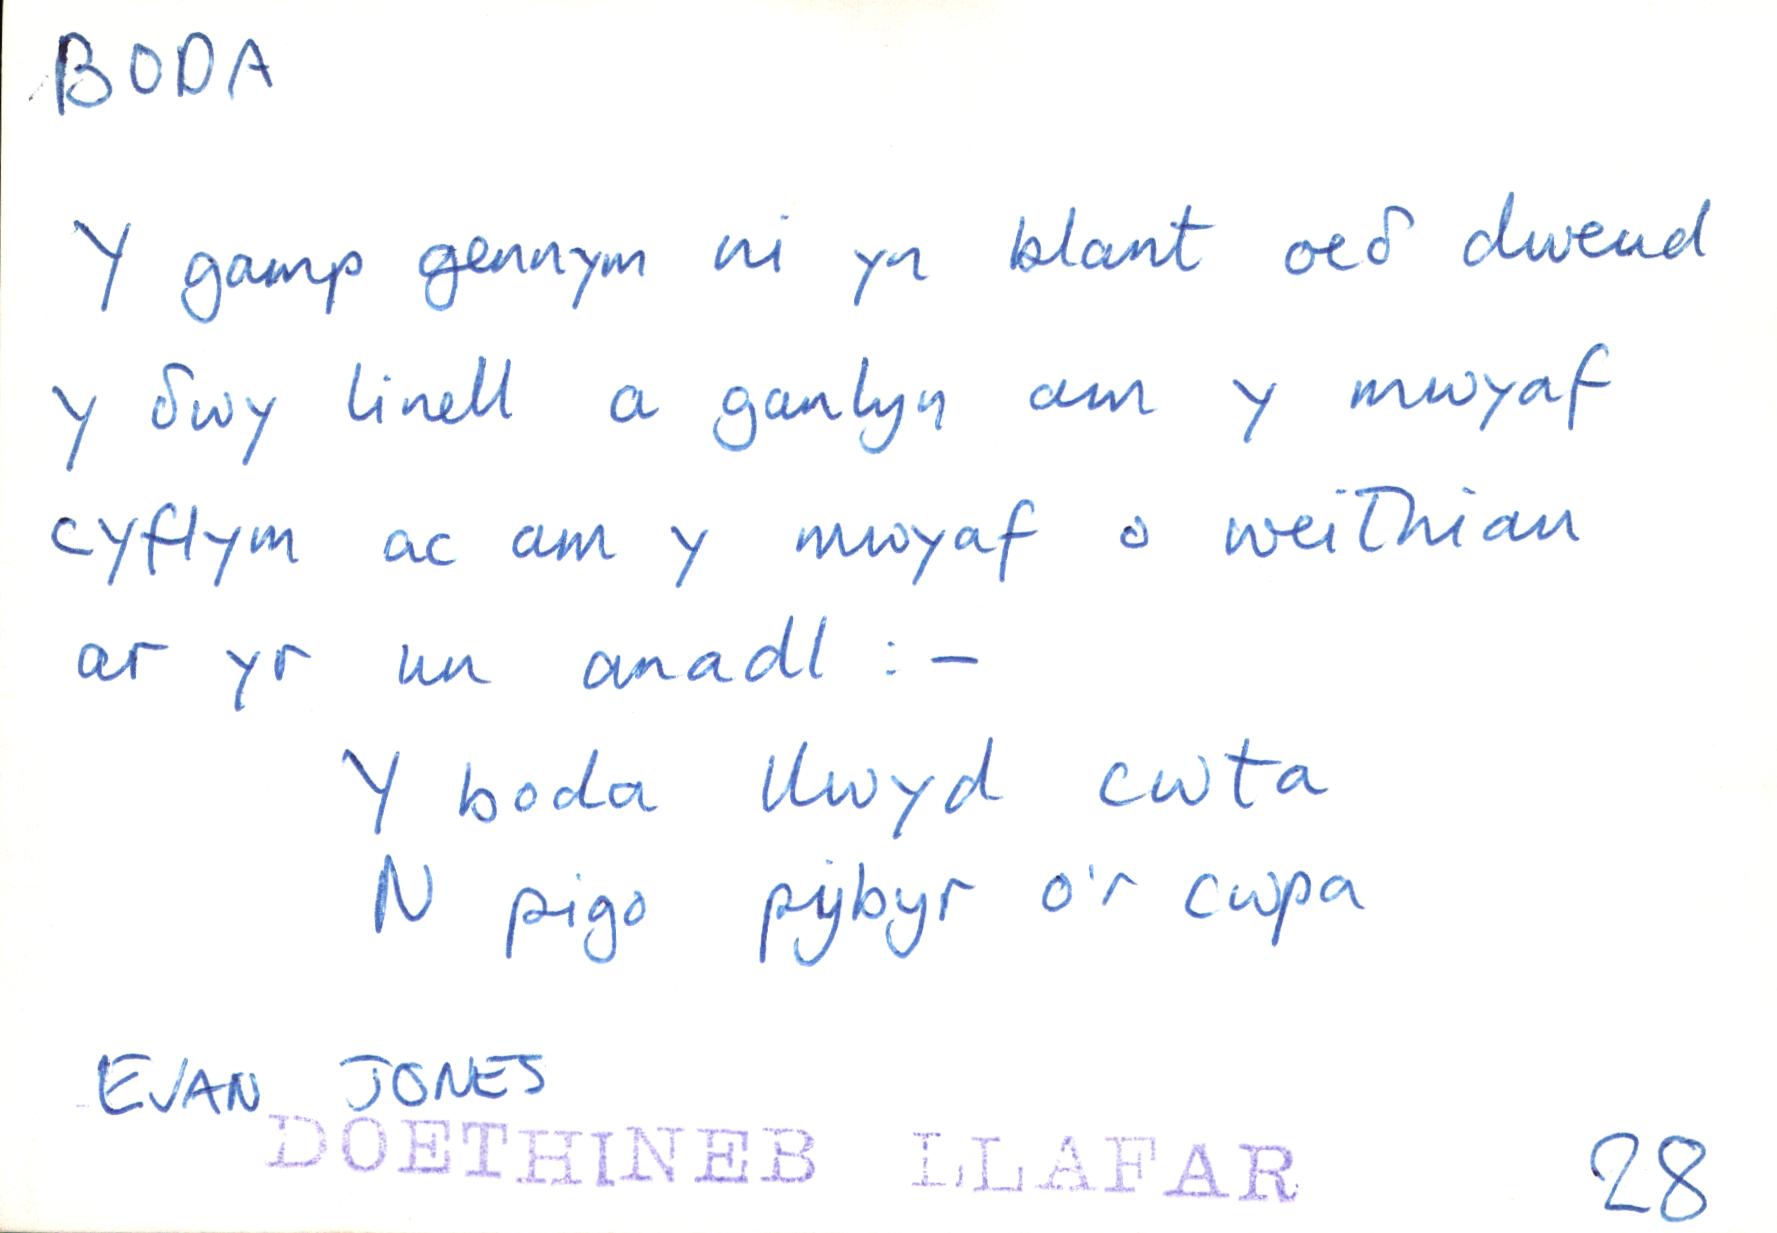 BODA
Y gamp gennym ni yn blant oeδ dweud
y δwy linell a ganlyn am y mwyaf
cyflym ac am y mwyaf o weithian
ar yr un anadl :-
Y boda llwyd cwta
N pigo pybyr o'r cwpa
EVAN JONES
DOETHINEB LLAFAR
28